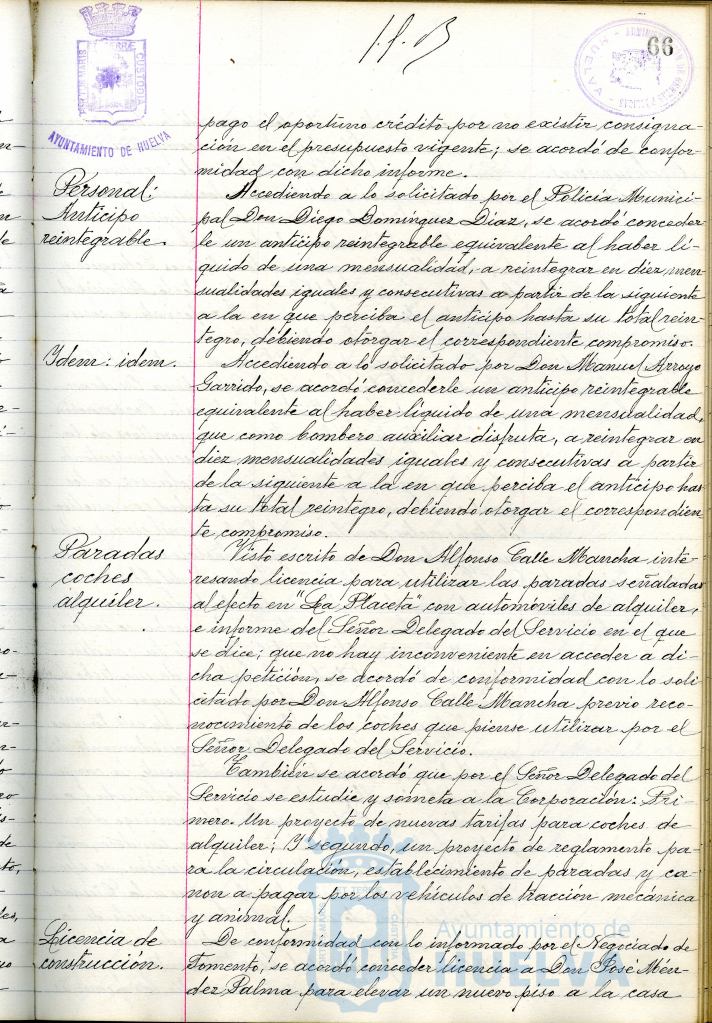 66
AYUNTAMIENTO DE HUELVA
pago el oportuno crédito por no existir consigna-
ción en el presupuesto vigente; se acordó de confor-
midad con dicho informe.
Personal:
Anticipo
reintegrable.
Accediendo a lo solicitado por el Policía Munici-
pal Don Diego Domínguez Díaz, se acordó conceder-
le un anticipo reintegrable equivalente al haber lí-
quido de una mensualidad, a reintegrar en diez men-
sualidades iguales y consecutivas a partir de la siguiente
a la en que perciba el anticipo hasta su total rein-
tegro, debiendo otorgar el correspondiente compromiso.
Idem: idem.
Accediendo a lo solicitado por Don Manuel Arroyo
Garrido, se acordó concederle un anticipo reintegrable
equivalente al haber líquido de una mensualidad,
que como bombero auxiliar disfruta, a reintegrar en
diez mensualidades iguales y consecutivas a partir
de la siguiente a la en que perciba el anticipo has-
ta su total reintegro, debiendo otorgar el correspondien-
te compromiso.
Paradas
coches
alquiler.
Visto escrito de Don Alfonso Calle Mancha inte-
resando licencia para utilizar las paradas señaladas
al efecto en "La Placeta" con automóviles de alquiler,
e informe del Señor Delegado del Servicio en el que
se dice; que no hay inconveniente en acceder a di-
cha petición, se acordó de conformidad con lo soli-
citado por Don Alfonso Calle Mancha previo reco-
nocimiento de los coches que piense utilizar por el
Señor Delegado del Servicio.
También se acordó que por el Señor Delegado del
Servicio se estudie y someta a la Corporación: Pri-
mero. Un proyecto de nuevas tarifas para coches de
alquiler; Y segundo, un proyecto de reglamento pa-
ra la circulación, establecimiento de paradas y ca-
non a pagar por los vehículos de tracción mecánica
y animal.
Licencia de
construcción.
De conformidad con lo informado por el Negociado de
Fomento, se acordó conceder licencia a Don José Mén-
dez Palma para elevar un nuevo piso a la casa
Ayuntamiento de
HUELVA